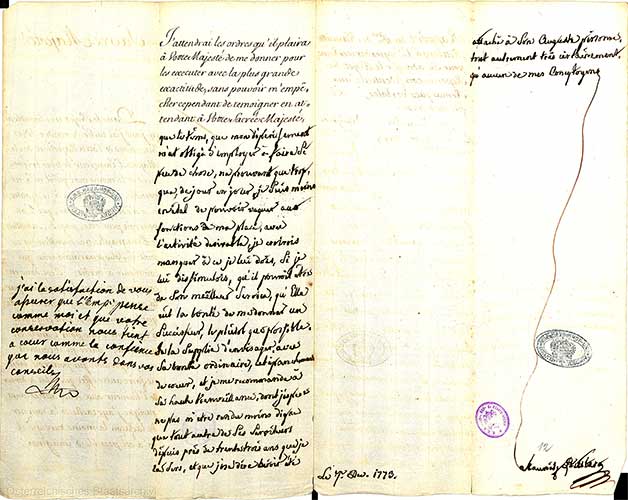 J'attendrai les ordres qu'il plaira
à Votre Majesté de me donner pour
les executer avec la plus grande
exactitude, sans pouvoir m'empê-
cher cependant de temoigner en at-
tendant à Votre Sacrée Majesté,
que le tems, que mon
m'at obligé d'employer à faire si
peu de chose, ne prouvant que trop,
que, de jour en jour, je suis moins
en état de pouvoir vaquer aux
fonctions de ma place, avec
l'activité desirable, je croirois
manquer à ce je lui dois, si je
lui dissimulois, qu'il pourroit être
de Son meilleur Service, qu'Elle
eût la bonté de me donner un
Successeur, le plutôt que possible.
Je La Supplie d'envisager, avec
Sa bonté ordinaire, cet épanchement
de coeur, et je me recommande à
Sa haute bienveillance, dont j'espere
ne pas m'etre rendu moins digne
que tout autre de Ses Serviteurs
depuis près de trente trois ans que je
La Sers, et que j'ose dire avoir été
j'ai la satisfaction de vous
assurer que l'Emp: pense
comme moi et que votre
conservation nous tient
a coeur comme la confience
que nous avonts dans vos
conseils
attaché à Son Auguste personne,
tout autrement très certainement,
qu'aucun de mes Concytoyens
Le 7. Dec. 1773.
12
Kaunitz Rittberg
Österreichisches Staatsarchiv